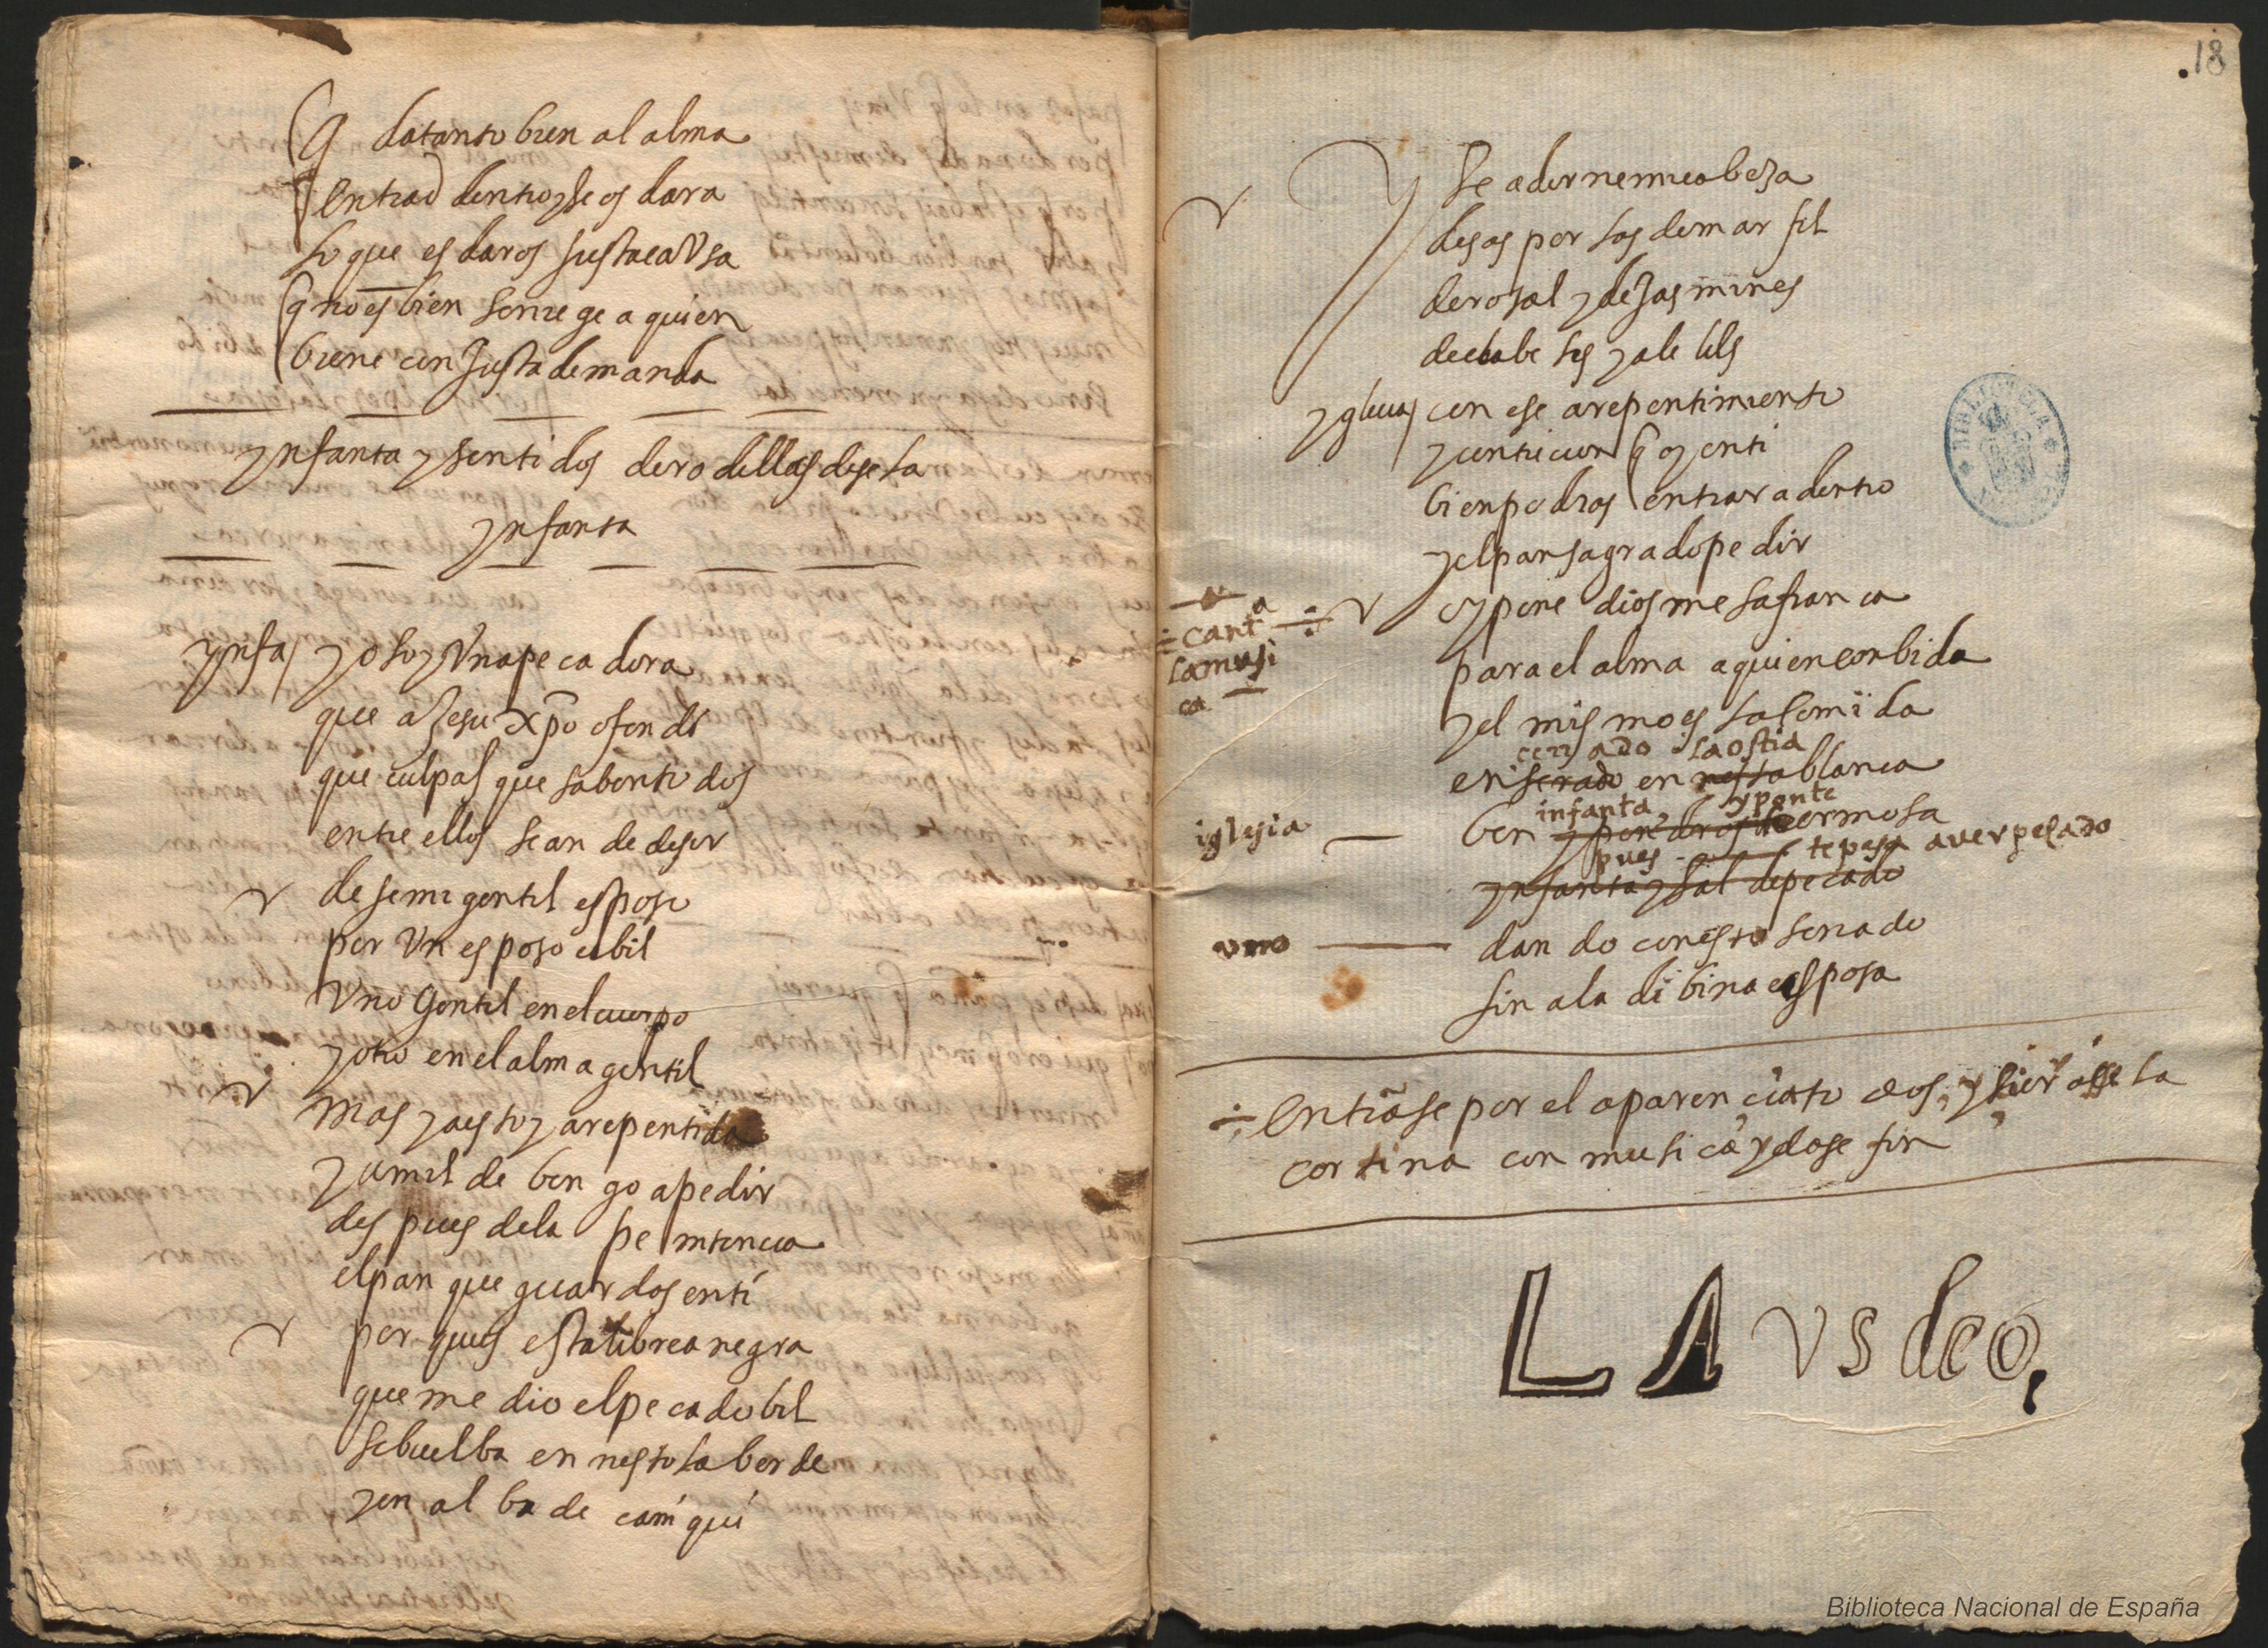 q da tanto bien al alma
entrad dentro y se os dara
lo que es daros justa caVsa
q no es bien se niege a quien
biene con justa demanda
ynfanta y sentidos de rodillas dise la
ynfanta
ynfa yo soy Vna pecadora
que a Jesu xpo ofendi
que culpas que sabentidos
entre ellos se an de desir
dese mi gentil esposo
por Vn esposo cibil
Vno gentil en el cuerpo
y otro en el alma gentil
mas ya estoy arepentida
y umilde bengo a pedir
despues de la penitencia
el pan que guardas en ti
por ques esta librea negra
que me dio el pecado bil
se buelba en nesto la berde
y en alba de caniqui
18
y se adorne mi cabesa
desas perlas de marfil
de rosal y de jasmines
de clabeles y alelils
yglecia con ese arepentimiento
y contricion q oy en ti
bien podras entrar a dentro
y el pan sagrado pedir
cant a
la musi
ca
oy pone dios mesa franca
para el alma a quien conbida
y el mismo es la comida
cerrado la ostia
enserado en blanca
infanta y ponte
iglesia ben ermosa
pues te pesa aver pecado
ynfanta y sal de pecado
vno dando con esto senado
fin a la dibina esposa
entrase por el aparenciato dos, y sierase la
cortina con musica y dase fin
LAVS deo,
BIBLIOTECA
Biblioteca Nacional de España